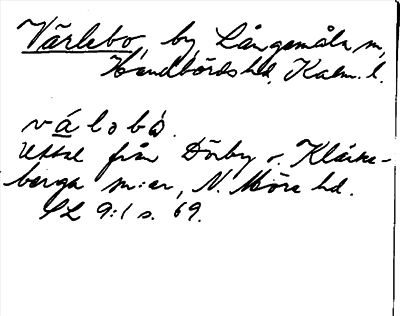 Värlebo, by, Långemåla sn,
Handbörds hd, Kalm. l.
válobó.
Uttal från Dörby o. Kläcke-
berga sn:ar, N. Möre hd.
SL 9:1 s. 69.